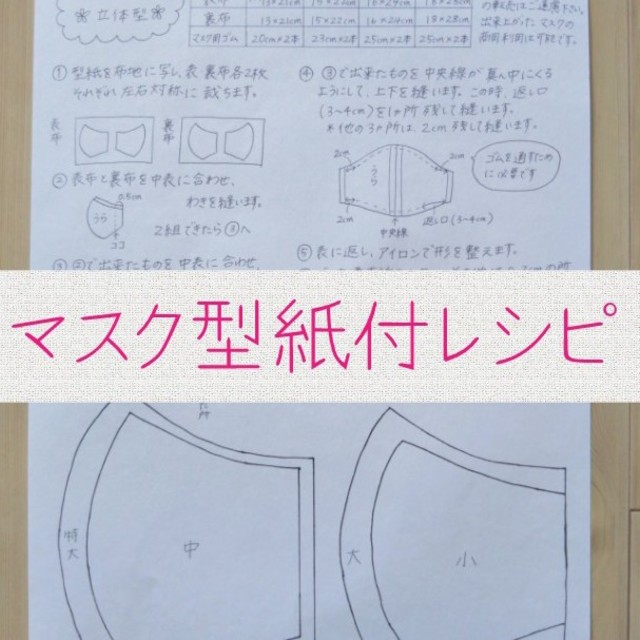 立体型
裏布
マスク用ゴム 20cm×2本 23cm×2本 25cm×2本 25cm×2本
① 型紙を布地に写し、表裏布各2枚
それぞれ左右対称に裁ちます。
表布
裏布
② 表布と裏布を中表に合わせ、
0.5cm
わきを縫います。
うら
ココ
2組できたら③へ
③ ②で出来たものを中表に合わせ、
④ ③で出来たものを中央線が真ん中にくる
ようにして、上下を縫います。この時、返し口
(3~4cm)を1ヶ所残して縫います。
*他の3ヶ所は2cm残して縫います。
2cm
2cm
うら
2cm
中央線
返し口(3~4cm)
ゴムを通すため
に必要です
⑤ 表に返し、アイロンで形を整えます。
マスク型紙付レシピ
特大
中
大
小